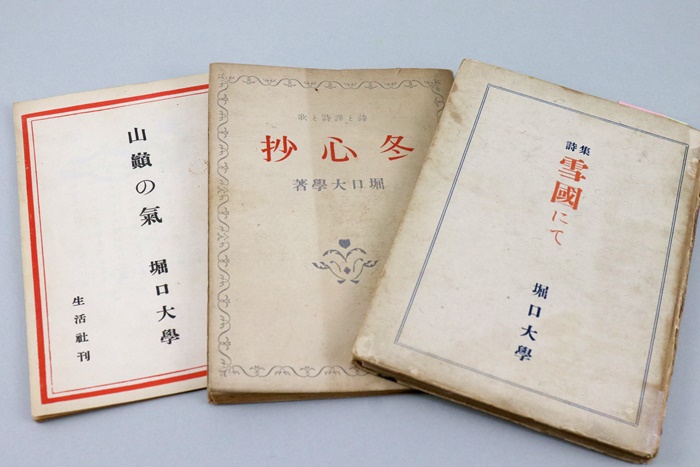 山巓の氣
堀口大學
生活社刊
歌と詩譯と詩
抄心冬
著學大口堀
詩集
雪國にて
堀口大學